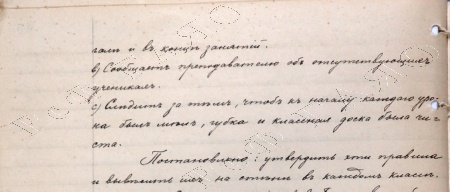 чалѣ и въ концѣ занятій.
в) Сообщаетъ преподавателю объ отсутствующихъ
ученикахъ.
с) Слѣдитъ за тѣмъ, чтобъ къ началу каждаго уро-
ка былъ мѣлъ, губка и классная доска была чи-
ста.
Постановлено: утвердить эти правила
и вывѣсить ихъ на стѣны въ каждомъ классѣ.